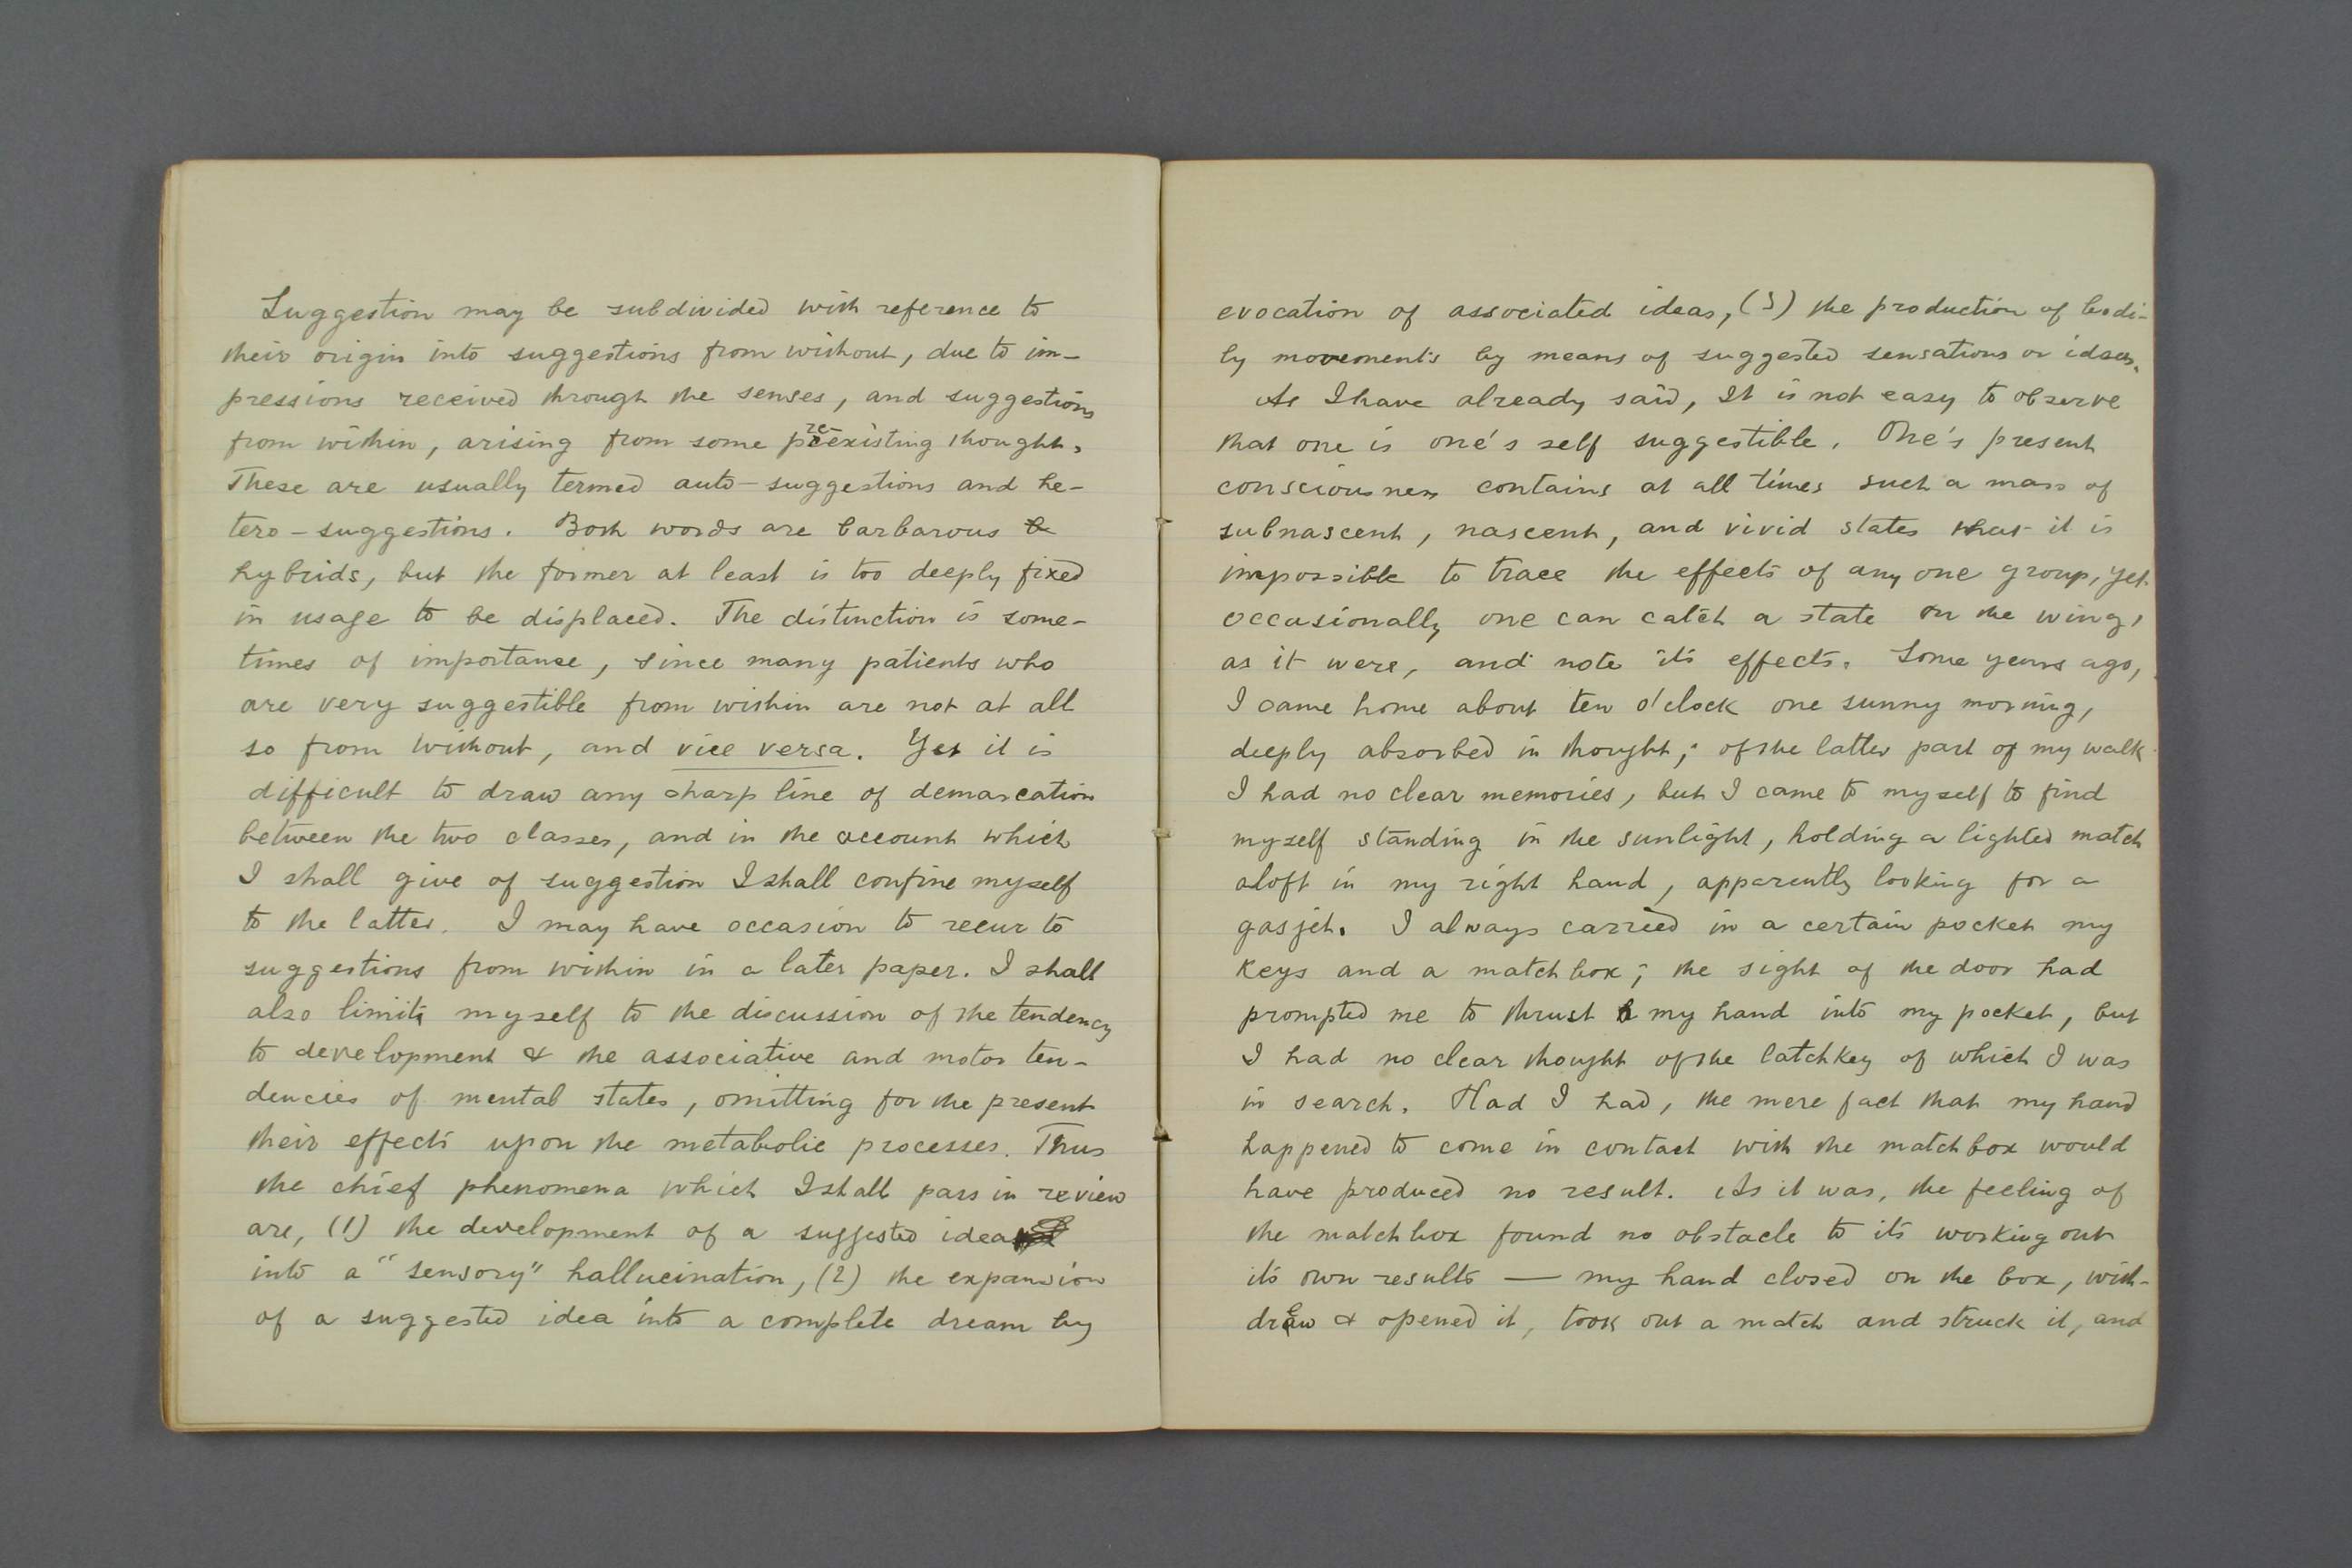 Suggestion may be subdivided with reference to
their origin into suggestions from without, due to im-
pressions received through the senses, and suggestions
from within, arising from some preexisting thought.
These are usually termed auto-suggestions and he-
tero-suggestions. Both words are barbarous
hybrids, but the former at least is too deeply fixed
in usage to be displaced. The distinction is some-
times of importance, since many patients who
are very suggestible from within are not at all
so from without, and vice versa. Yet it is
difficult to draw any sharp line of demarcation
between the two classes, and in the account which
I shall give of suggestion I shall confine myself
to the latter. I may have occasion to recur to
suggestions from within in a later paper. I shall
also limit myself to the discussion of the tendency
to development & the associative and motor ten-
dencies of mental states, omitting for the present
their effects upon the metabolic processes. Thus
the chief phenomena which I shall pass in review
are, (1) the development of a suggested idea
into a "sensory" hallucination, (2) the expansion
of a suggested idea into a complete dream by
evocation of associated ideas, (3) the production of bodi-
ly movements by means of suggested sensations or ideas.
As I have already said, It is not easy to observe
that one is one's self suggestible. One's present
consciousness contains at all times such a mass of
subnascent, nascent, and vivid states that it is
impossible to trace the effects of any one group, yet
occasionally one can catch a state on the wing,
as it were, and note its effects. Some years ago,
I came home about ten o'clock one sunny morning,
deeply absorbed in thought; of the latter part of my walk
I had no clear memories, but I came to myself to find
myself standing in the sunlight, holding a lighted match
aloft in my right hand, apparently looking for a
gasjet. I always carried in a certain pocket my
keys and a matchbox; the sight of the door had
prompted me to thrust my hand into my pocket, but
I had no clear thought of the latchkey of which I was
in search. Had I had, the mere fact that my hand
happened to come in contact with the matchbox would
have produced no result. As it was, the feeling of
the matchbox found no obstacle to its working out
its own results — my hand closed on the box, with-
drew & opened it, took out a match and struck it, and